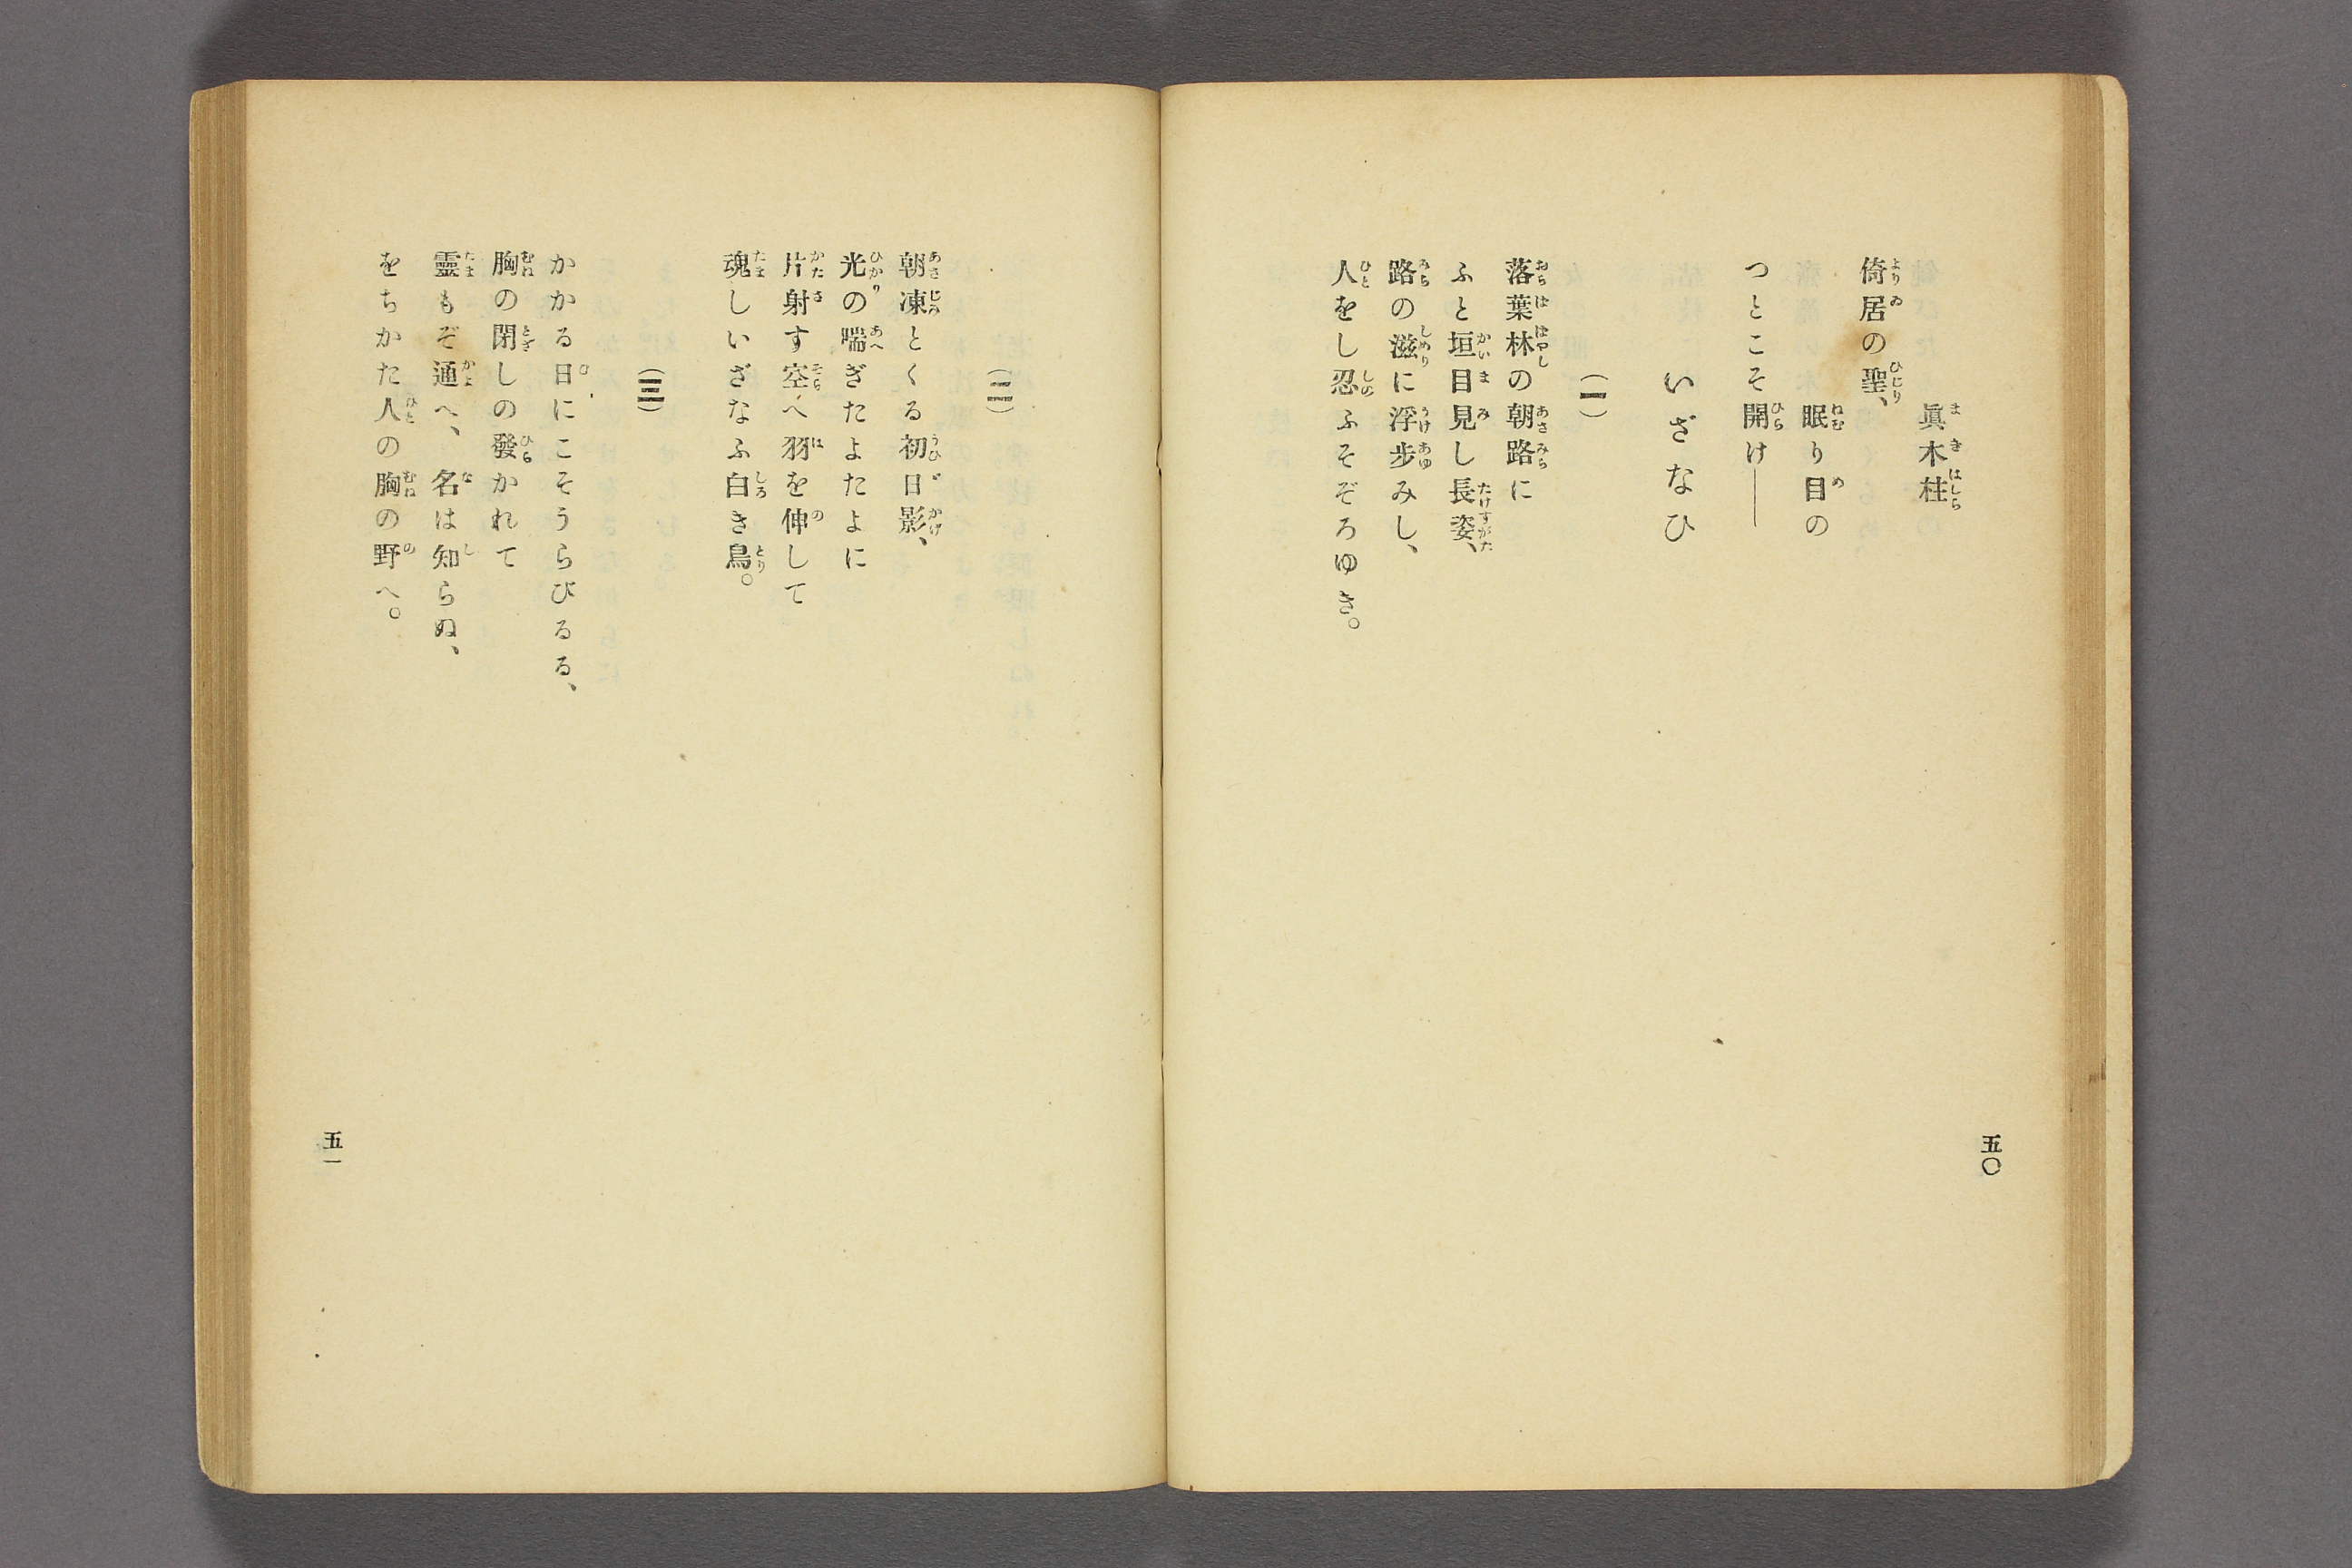 眞木柱
倚居の聖、
眠り目の
つとこそ開け――
いざなひ
(一)
落葉林の朝路に
ふと垣目見し長姿、
路の滋に浮步みし、
人をし忍ふそぞろゆき。
五〇
(二)
朝凍とくる初日影、
光の喘ぎたよたよに
片射す空へ羽を伸して
魂しいざなふ白き鳥。
(三)
かかる日にこそうらびるる、
胸の閉しの發かれて
靈もぞ通へ、名は知らぬ、
をちかた人の胸の野へ。
五一